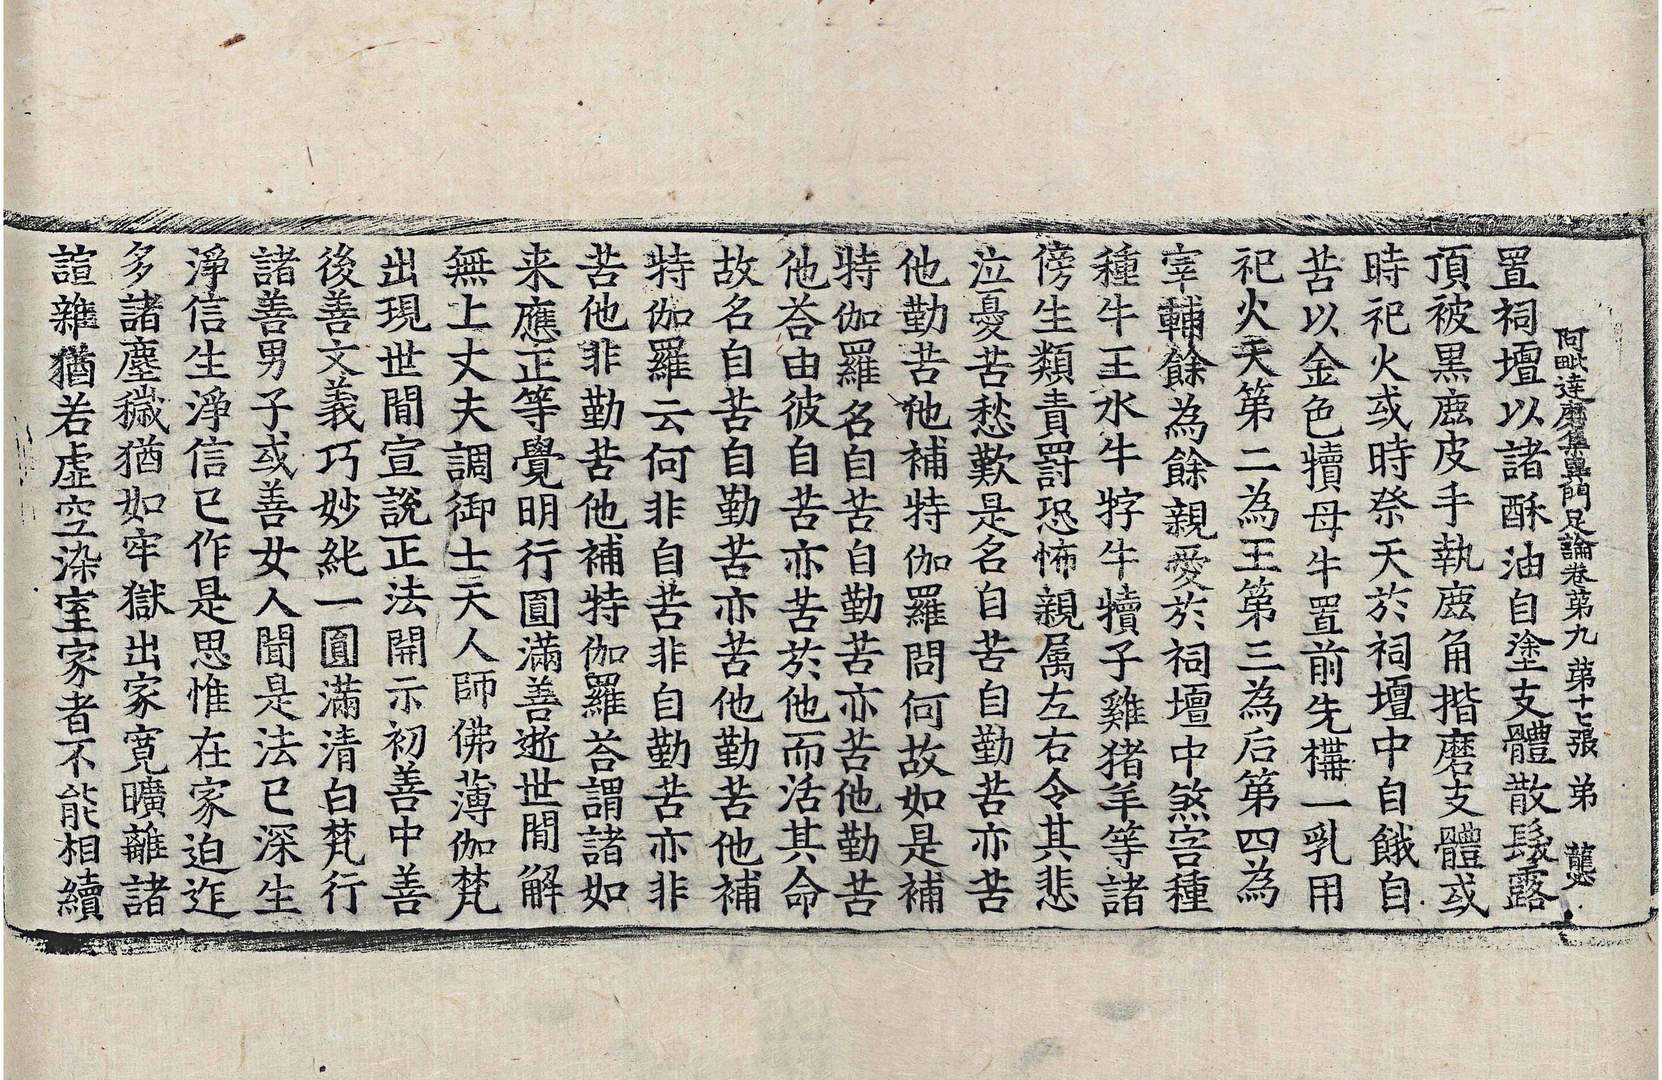 阿毗達磨集異門足論卷第九 第十七張 弟 龔
置祠壇以諸酥油自塗支體散髮露
頂被黑鹿皮手執鹿角揩磨支體或
時祀火或時祭天於祠壇中自餓自
苦以金色犢母牛置前先構一乳用
祀火天第二為王第三為后第四為
宰輔餘為餘親愛於祠壇中煞害種
種牛王水牛牸牛犢子雞猪羊等諸
傍生類責罸恐怖親属左右令其悲
泣憂苦愁歎是名自苦自勤苦亦苦
他勤苦他補特伽羅問何故如是補
特伽羅名自苦自勤苦亦苦他勤苦
他荅由彼自苦亦苦於他而活其命
故名自苦自勤苦亦苦他勤苦他補
特伽羅云何非自苦非自勤苦亦非
苦他非勤苦他補特伽羅荅謂諸如
来應正等覺明行圓滿善逝世間解
無上丈夫調御士天人師佛薄伽梵
出現世間宣說正法開示初善中善
後善文義巧妙純一圓滿清白梵行
諸善男子或善女人聞是法已深生
淨信生淨信已作是思惟在家迫迮
多諸塵穢猶如牢獄出家寬曠離諸
諠雜猶若虛空染室家者不能相續